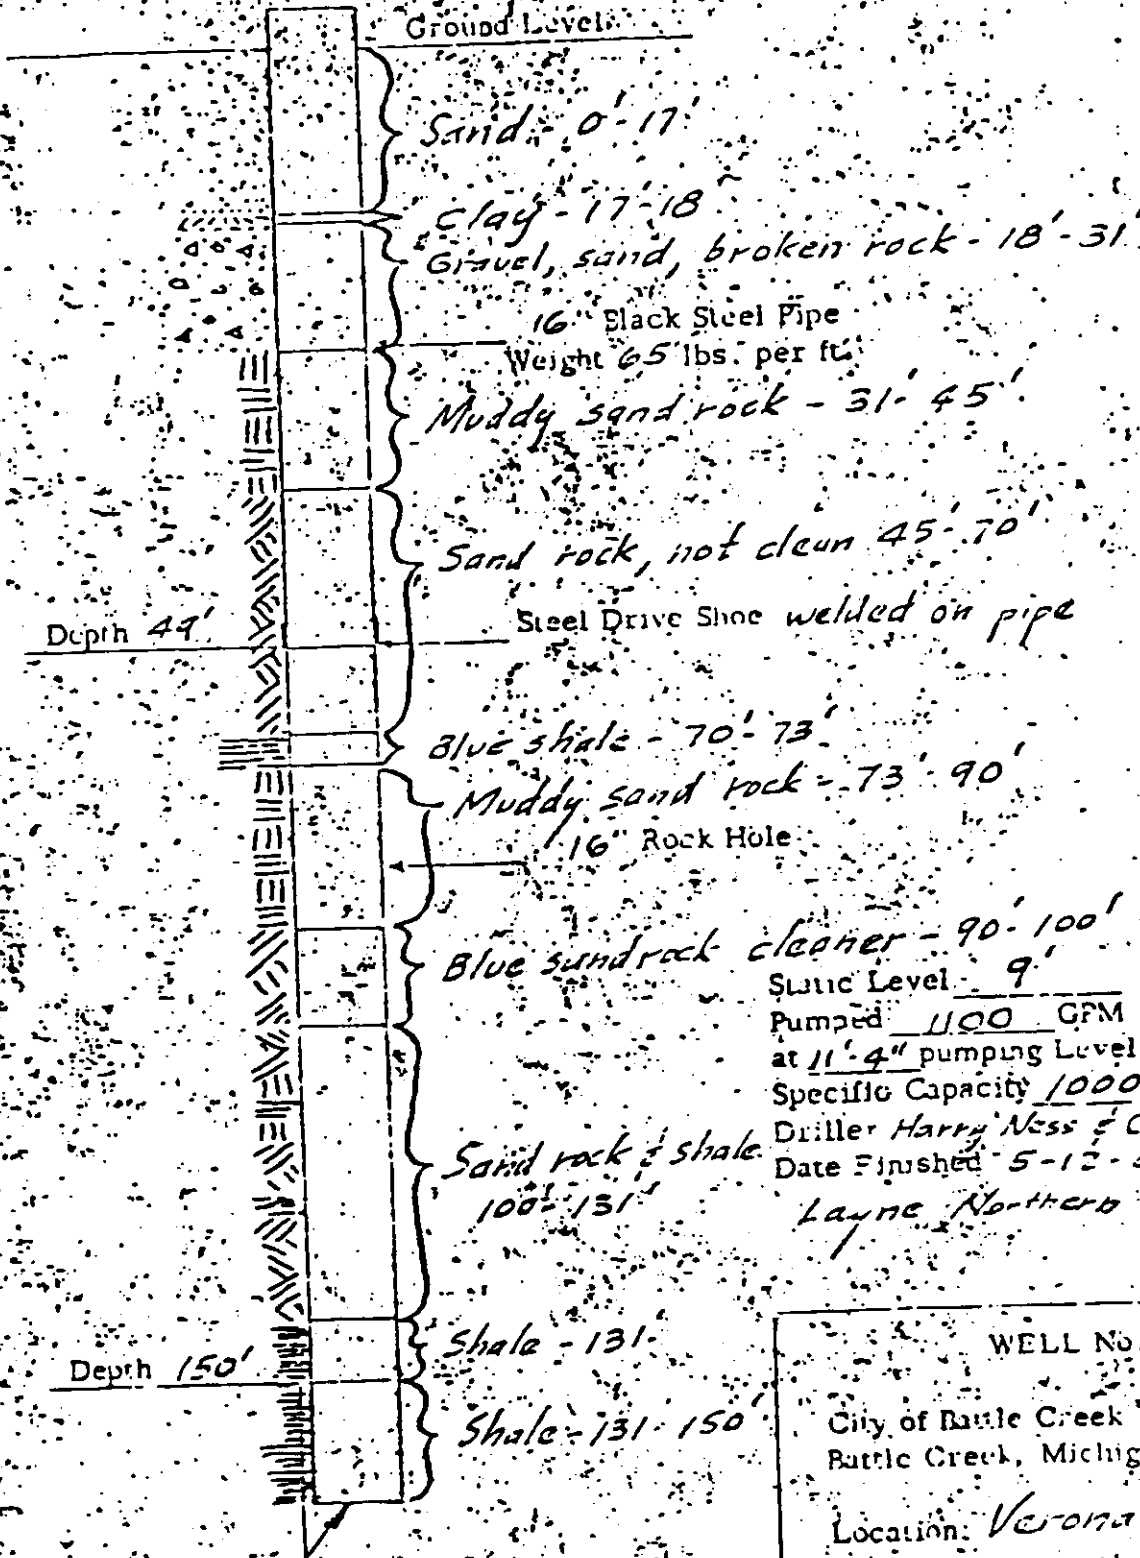 Ground Level
Sand - 0'-17'
Clay - 17-18
Gravel, sand, broken rock - 18'-31'
16" Black Steel Pipe
Weight 65 lbs. per ft.
Muddy sand rock - 31'-45'
Sand rock, not clean 45'-70'
Depth 49'
Steel Drive Shoe welded on pipe
Blue shale - 70'-73'
Muddy sand rock - 73'-90'
16" Rock Hole
Blue sandrock cleaner - 90'-100'
Static Level 9'
Pumped 1100 GPM
at 11'-4" pumping Level
Specific Capacity 1000
Driller Harry Ness & C
Date Finished 5-12-
Sand rock & shale
100'-131'
Layne Northern
Shale - 131-
Depth 150'
Shale - 131-150'
WELL No.
City of Battle Creek
Battle Creek, Michig
Location: Verona